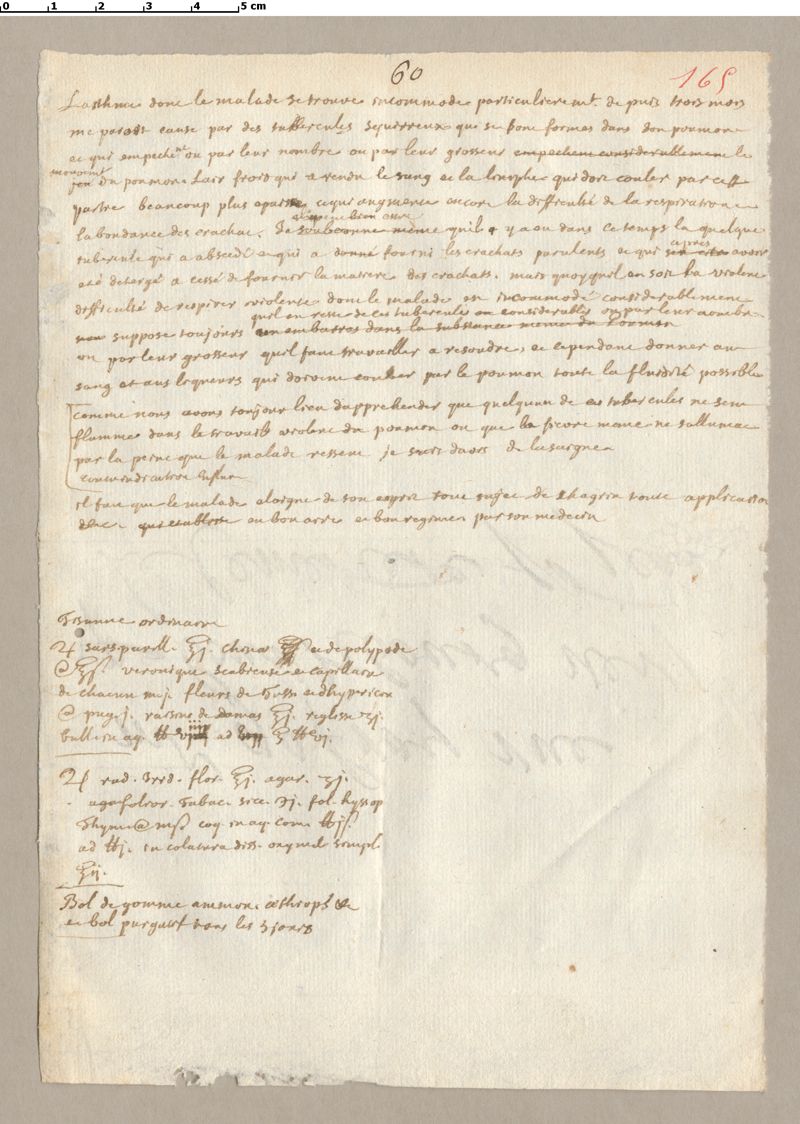 0 1 2 3 4 5 cm
60
165
Lasthme donc le malade se trouve incommode particulierem.t de puis trois mois
me paroist cause par des tubercules squirreux qui se sont formes dans son poumon
ce qui empeche ou par leur nombre ou par leur grosseur empechent considerablement le
mouvemt
jeu du poumon. Lair froid qui a rendu le sang et la limphe qui doit couler par cette
partie beaucoup plus ce qui augmente encore la difficulté de la respiration
labondance des crachat. Je soubconne meme quil y a eu dans ce temps la quelque
tubercule qui a absedé et qui a donné fourni les crachats purulents et qui apres avoir
eté detergé a cessé de fournir la matiere des crachats. mais quoy quil en soit la violente
difficulté de respirer violente donc le malade est incommodé considerablement
quil en reste de ces tubercules ou considerables ou par leur nombre
suppose toujours un embarras dans la substance meme du Poumon
ou par leur grosseur quil faut travailler a resoudre, et cependant donner au
sang et aux liqueurs qui doivent couler par le poumon toute la fluidité possible
Comme nous avons toujour lieu dapprehender que quelquun de ces tubercules ne sen
flamme dans le travail violent du poumon ou que la fievre meme ne sallume
par la peine que le malade ressent je suis davis de la saignee
il faut que le malade eloigne de son esprit tout sujet de chagrin toute application
&c. qui etablisse en bon aire et bon regime par son medecin
Tisanne ordinaire
♃ sarsparill. ℥j. chinæ et de polypode
@ ℥ß. veronique scabieuse et capillaire
de chacun m j. fleurs de Tussi et dhypericon
@ pug. j. raisins de damas ℥j. reglisse ʒj.
bull. in aq. ad ℔vj.
♃ rad. irid. flor. ℥j. agar. ʒj.
folior. Tabac. sicc. ʒj. fol. hyssop
Thymi @ mß coq. in aq. com. ℔jß.
ad ℔j. in colatura diss. oxymel simpl.
℥ij.
Bol de gomme ammon. æthiops &c
et bol purgatif tous les 3 jours